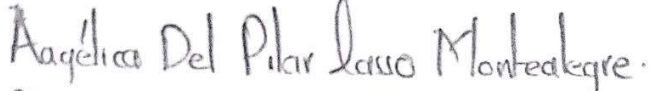 Aagélica Del Pilar Lasso Montealegre.